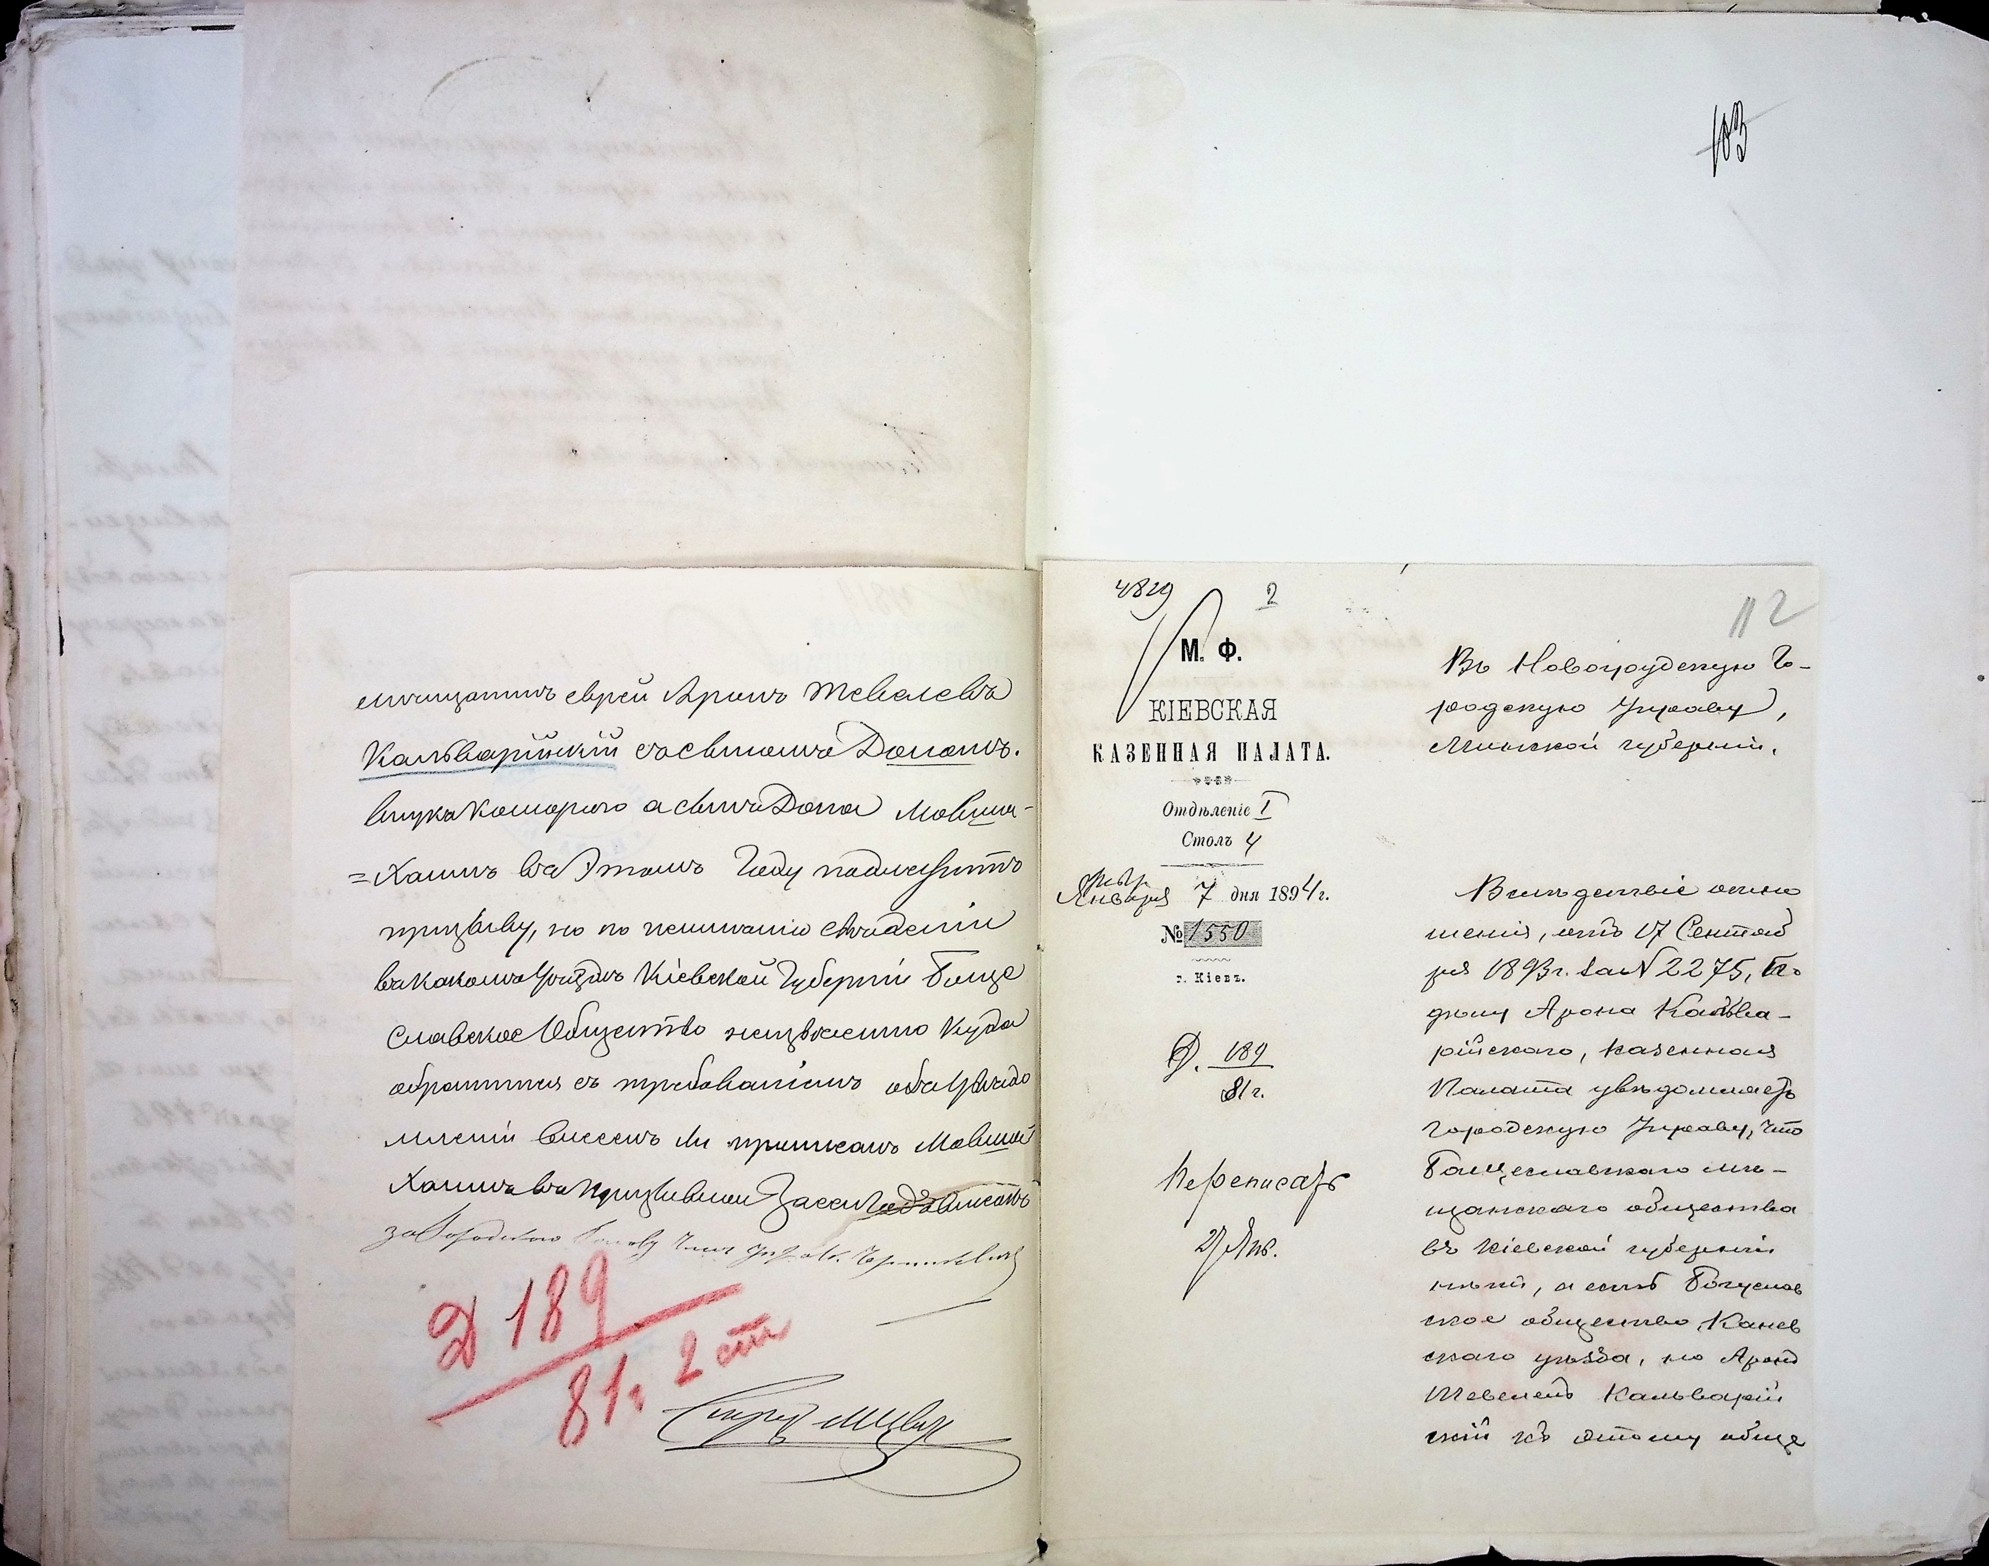 мѣщанинъ еврей Аронъ Тевелевъ
Кальварійскій съ сыномъ Дономъ.
внукъ котораго а сынъ Дона Мовша-
=Хаимъ въ этомъ году подлежитъ
призыву, но по неимѣнію свѣденій
въ какомъ уѣздѣ Кіевской Губерніи Баще
славское Общество неизвѣстно куда
обратится съ требованіемъ объ увѣдо
мленіи внесенъ ли приписанъ Мовша
Хаимъ въ призывной
за Городского Голову Членъ Управы
Д 189
81 г. 2 ст
103
4829
2
112
М. Ф.
КІЕВСКАЯ
КАЗЕННАЯ ПАЛАТА.
Отдѣленіе I
Столъ 4
Января 7 дня 1894 г.
№ 1550
г. Кіевъ.
Д. 189
81 г.
Переписать
27 Янв.
Въ Новогрудскую Го-
родскую Управу,
Минской губерніи.
Вслѣдствіе отно
шенія, отъ 17 Сентяб
ря 1893 г. за № 2275, по
дѣлу Арона Кальва-
рійскаго, Казенная
Палата увѣдомляетъ
Городскую Управу, что
Бащеславскаго мѣ-
щанскаго общества
въ Кіевской губерніи
нѣтъ, а есть Богуслав
ское общество, Канев
скаго уѣзда, но Аронъ
Тевелевъ Кальварій
скій къ этому обще